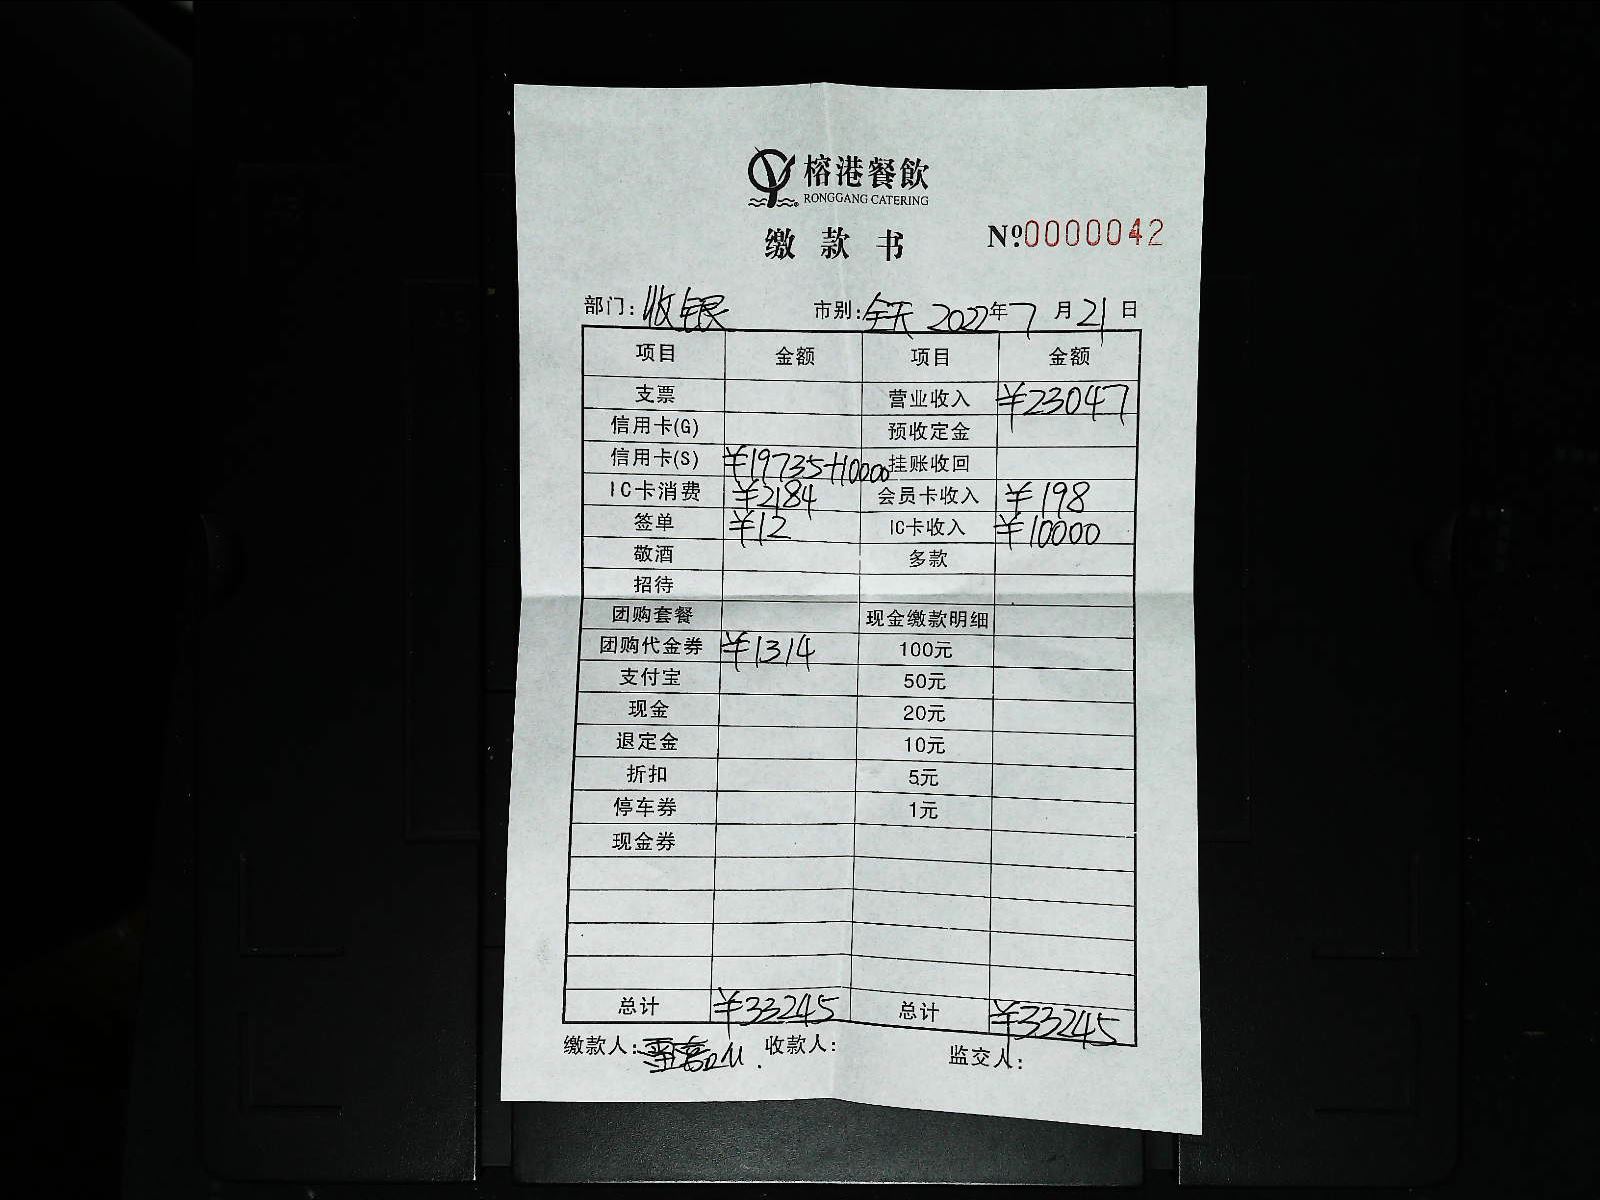 榕港餐飲
RONGGANG CATERING
缴款书 №0000042
部门:收银 市别:全天 2022年7月21日
项目 金额 项目 金额
支票 营业收入 ¥23047
信用卡(G) 预收定金
信用卡(S) ¥19735+10000 挂账收回
IC卡消费 ¥2184 会员卡收入 ¥198
签单 ¥12 IC卡收入 ¥10000
敬酒 多款
招待
团购套餐 现金缴款明细
团购代金券 ¥1314 100元
支付宝 50元
现金 20元
退定金 10元
折扣 5元
停车券 1元
现金券
总计 ¥33245 总计 ¥33245
缴款人: 收款人: 监交人: